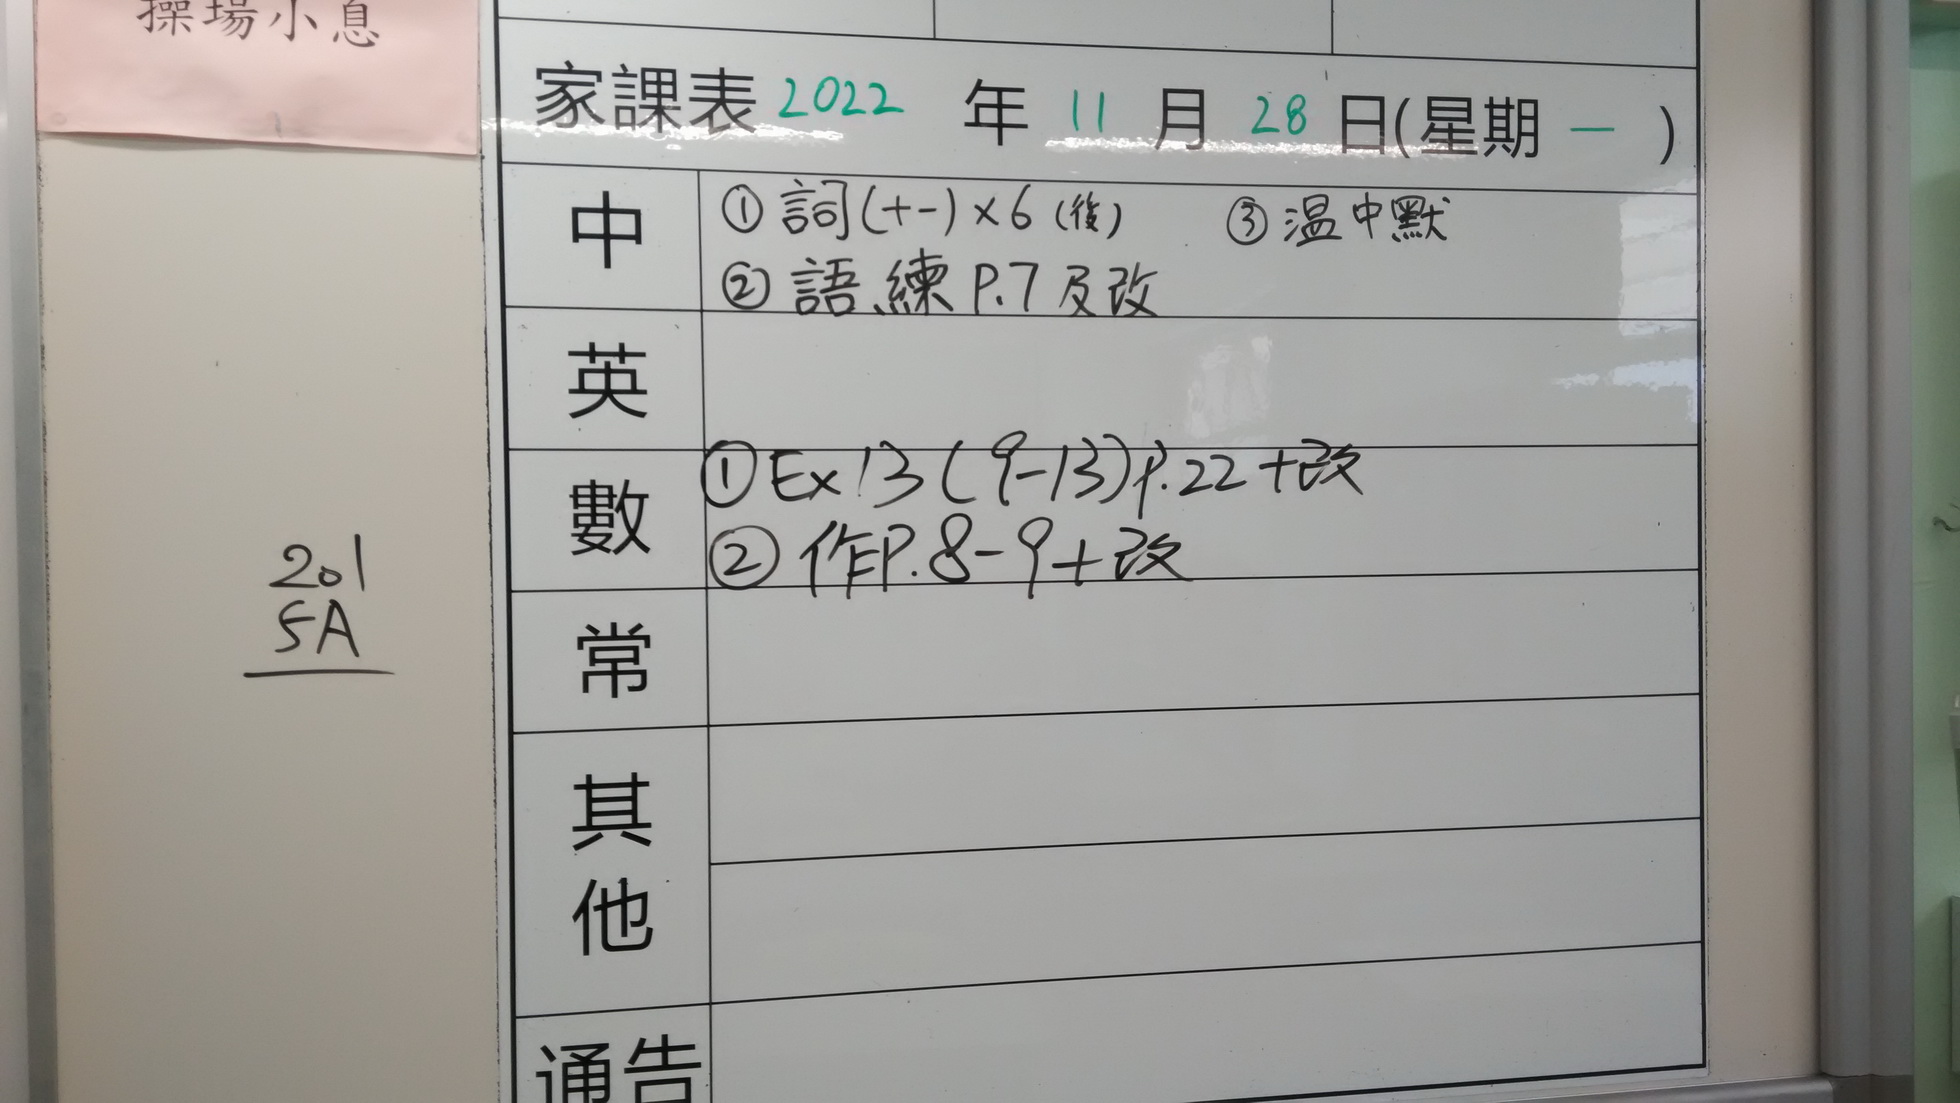 操場小息
家課表 2022 年 11 月 28 日(星期 一 )
中
① 詞(+-)×6 (後) ③ 温中默
② 語練 P.7 及改
英
數
① Ex 13 (9-13) P.22 + 改
② 作 P.8-9 + 改
常
其他
通告
201
5A